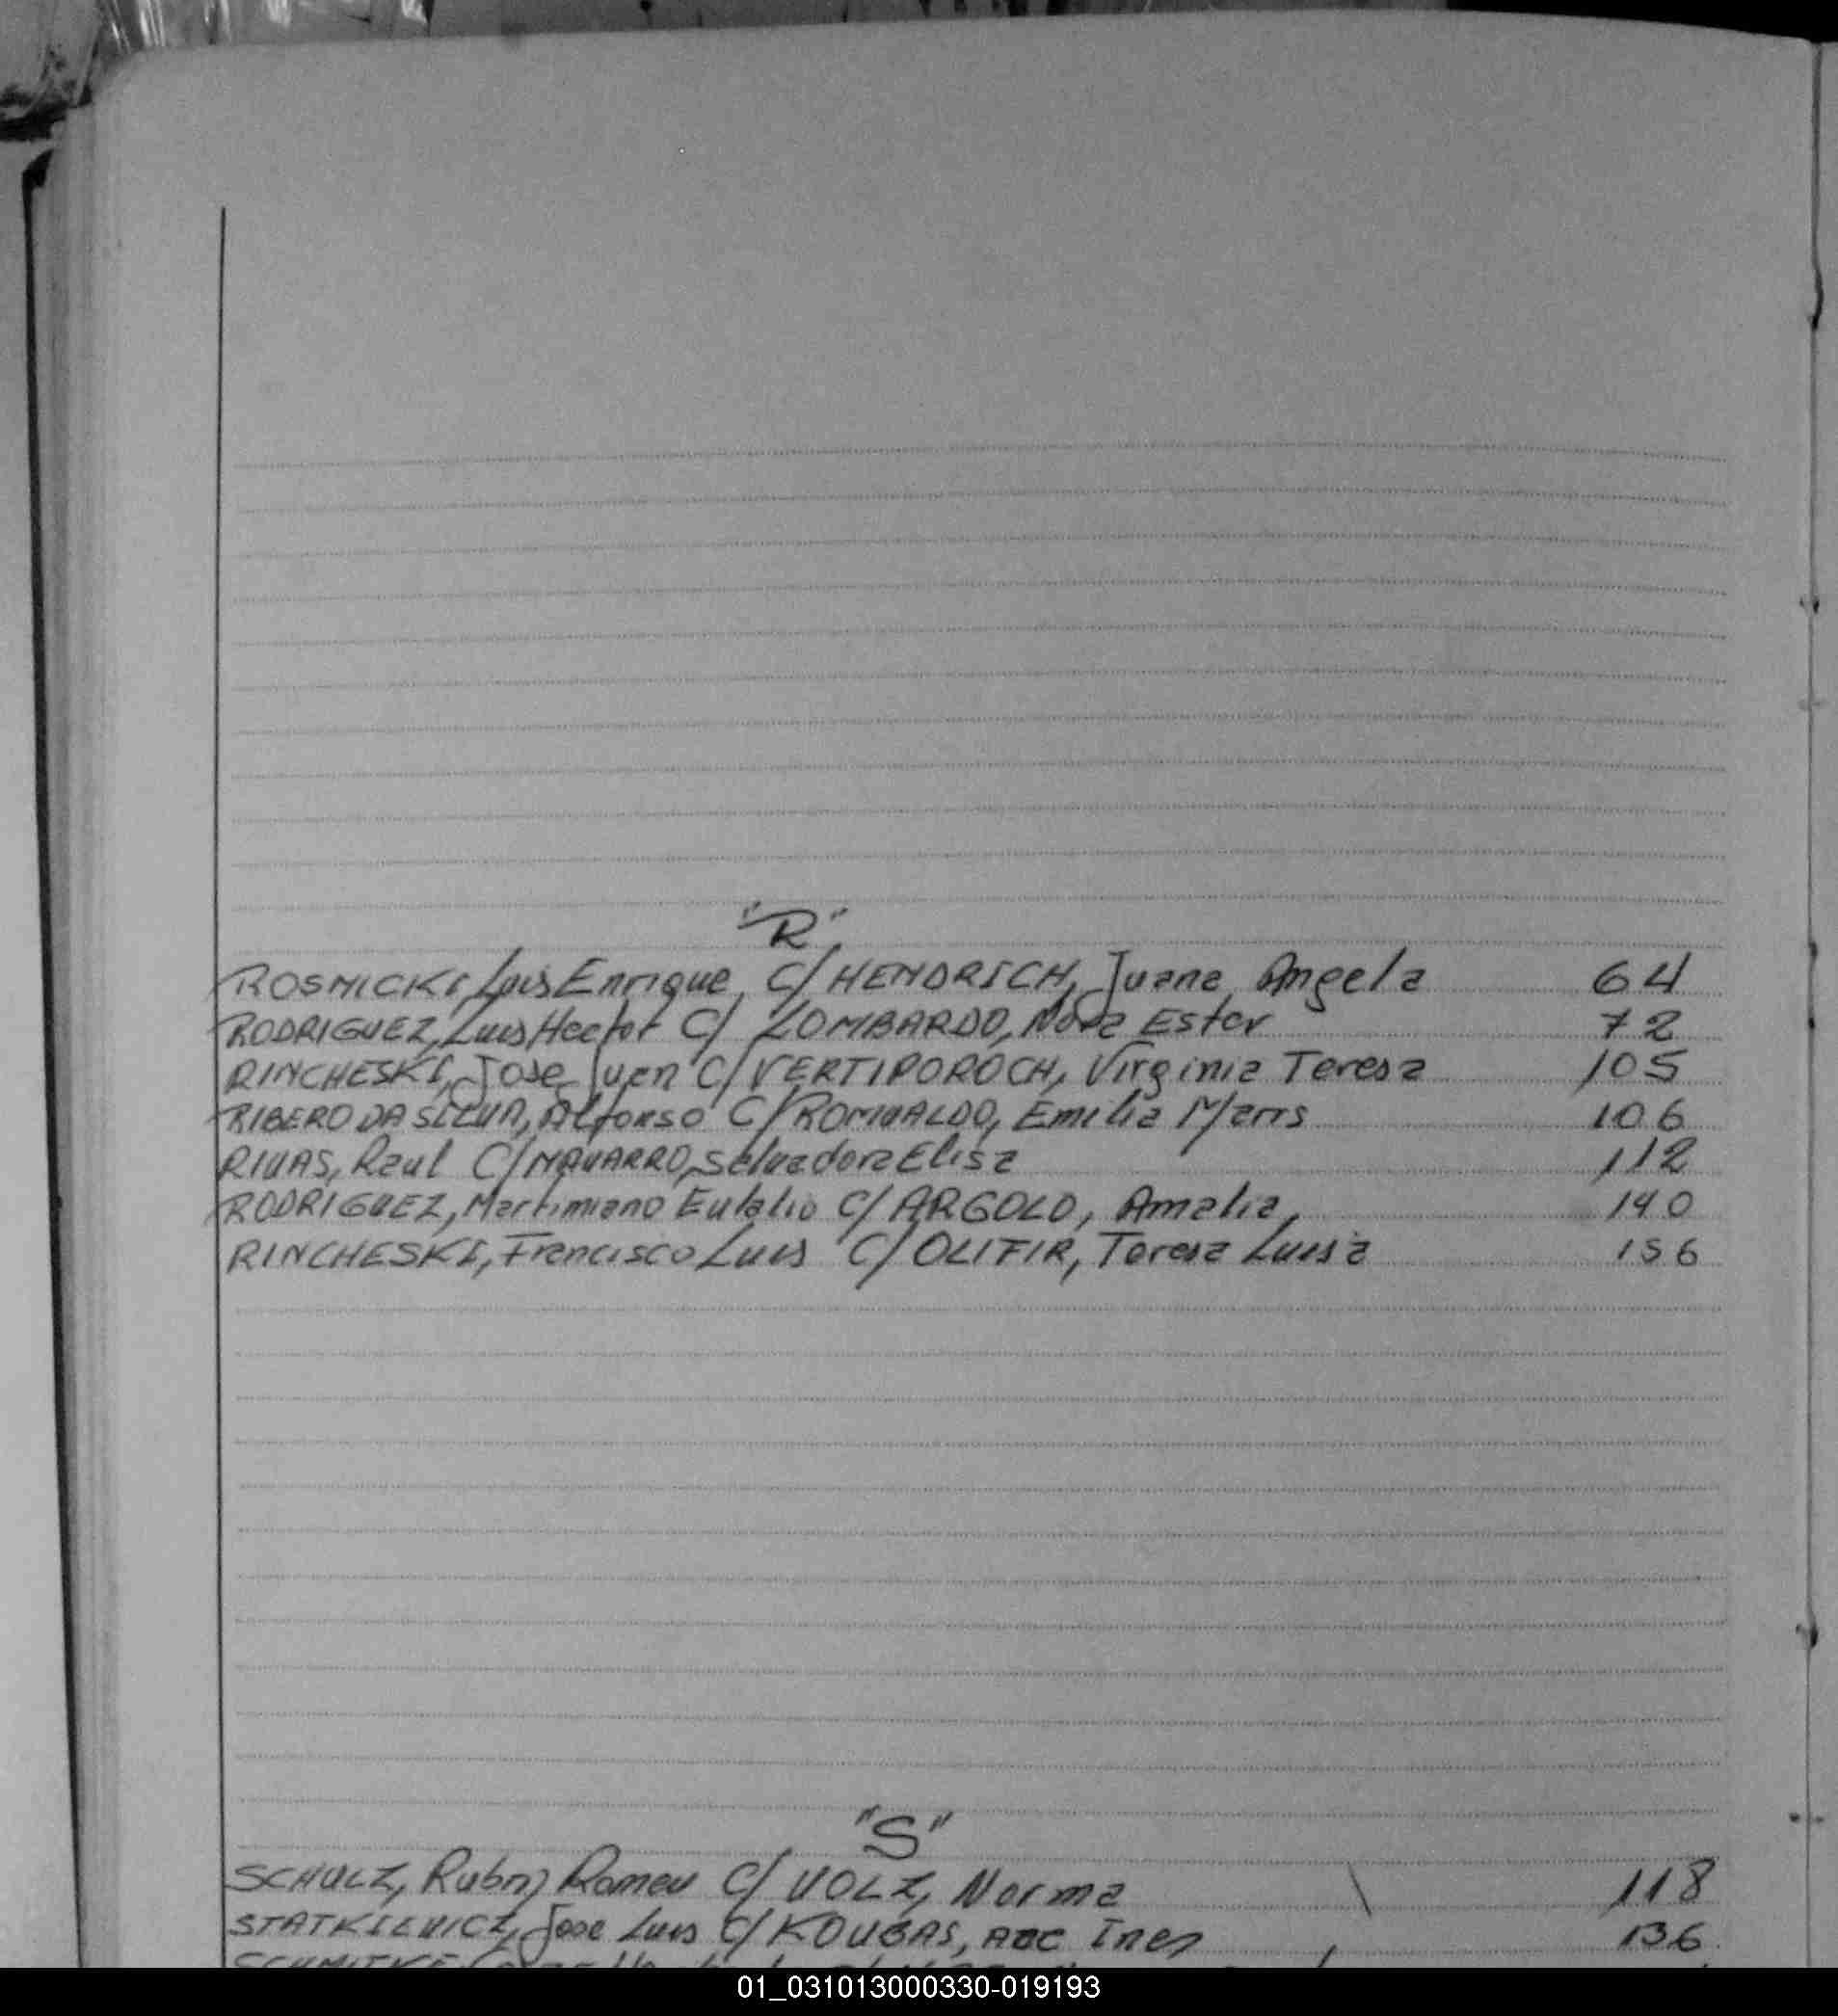 "R"
ROSNICKI, Luis Enrique C/ HENDRICH, Juana Angela 64
RODRIGUEZ, Luis Hector C/ LOMBARDO, Nora Ester 72
RINCHESKI, Jose Juan C/ VERTIPOROCH, Virginia Teresa 105
RIBERO DA SILVA, Alfonso C/ ROMUALDO, Emilia Maris 106
RIVAS, Raul C/ NAVARRO, Salvadora Elisa 112
RODRIGUEZ, Martimiano Eulalio C/ ARGOLO, Amalia, 140
RINCHESKI, Francisco Luis C/ OLIFIR, Teresa Luisa 156
"S"
SCHULZ, Rubn, Romeu C/ VOLZ, Norma 118
STATKIEVICZ, Jose Luis C/ KOUBAS, Ines 136
01_031013000330-019193